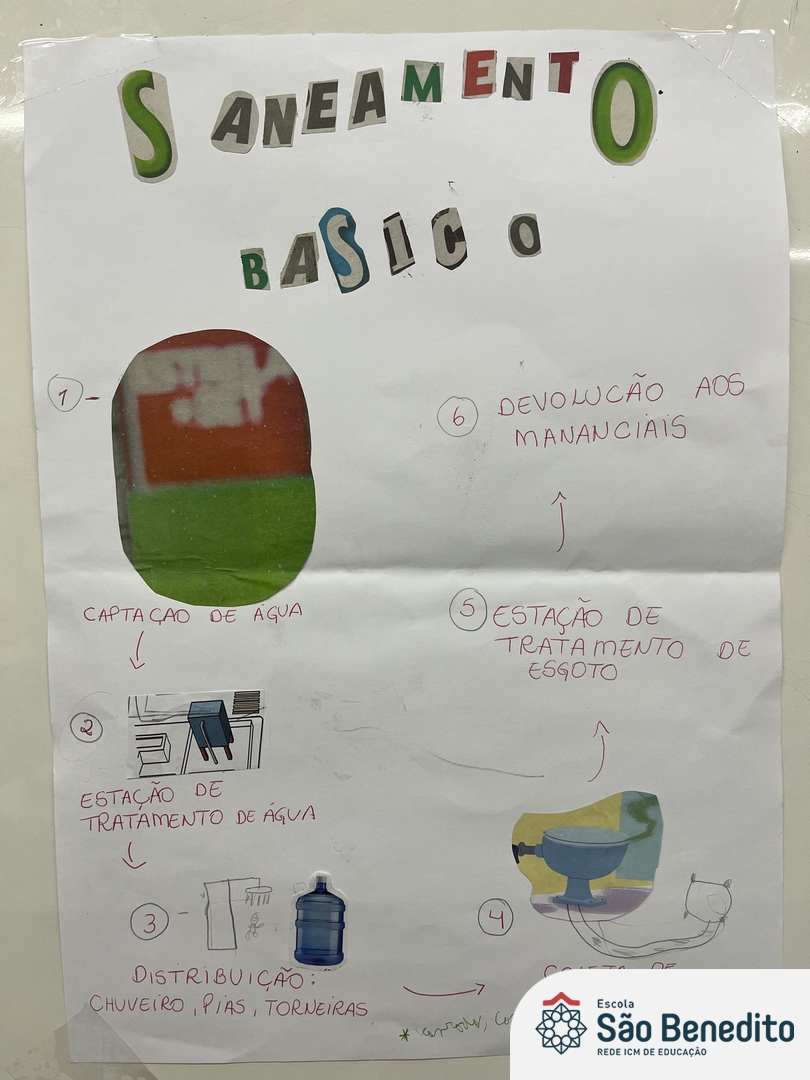 SANEAMENTO
BASICO
1-
CAPTAÇAO DE ÁGUA
2
ESTAÇÃO DE
TRATAMENTO DE ÁGUA
3 -
DISTRIBUIÇÃO:
CHUVEIRO, PIAS, TORNEIRAS
4
5 ESTAÇÃO DE
TRATAMENTO DE
ESGOTO
6 DEVOLUCÃO AOS
MANANCIAIS
Escola
São Benedito
REDE ICM DE EDUCAÇÃO